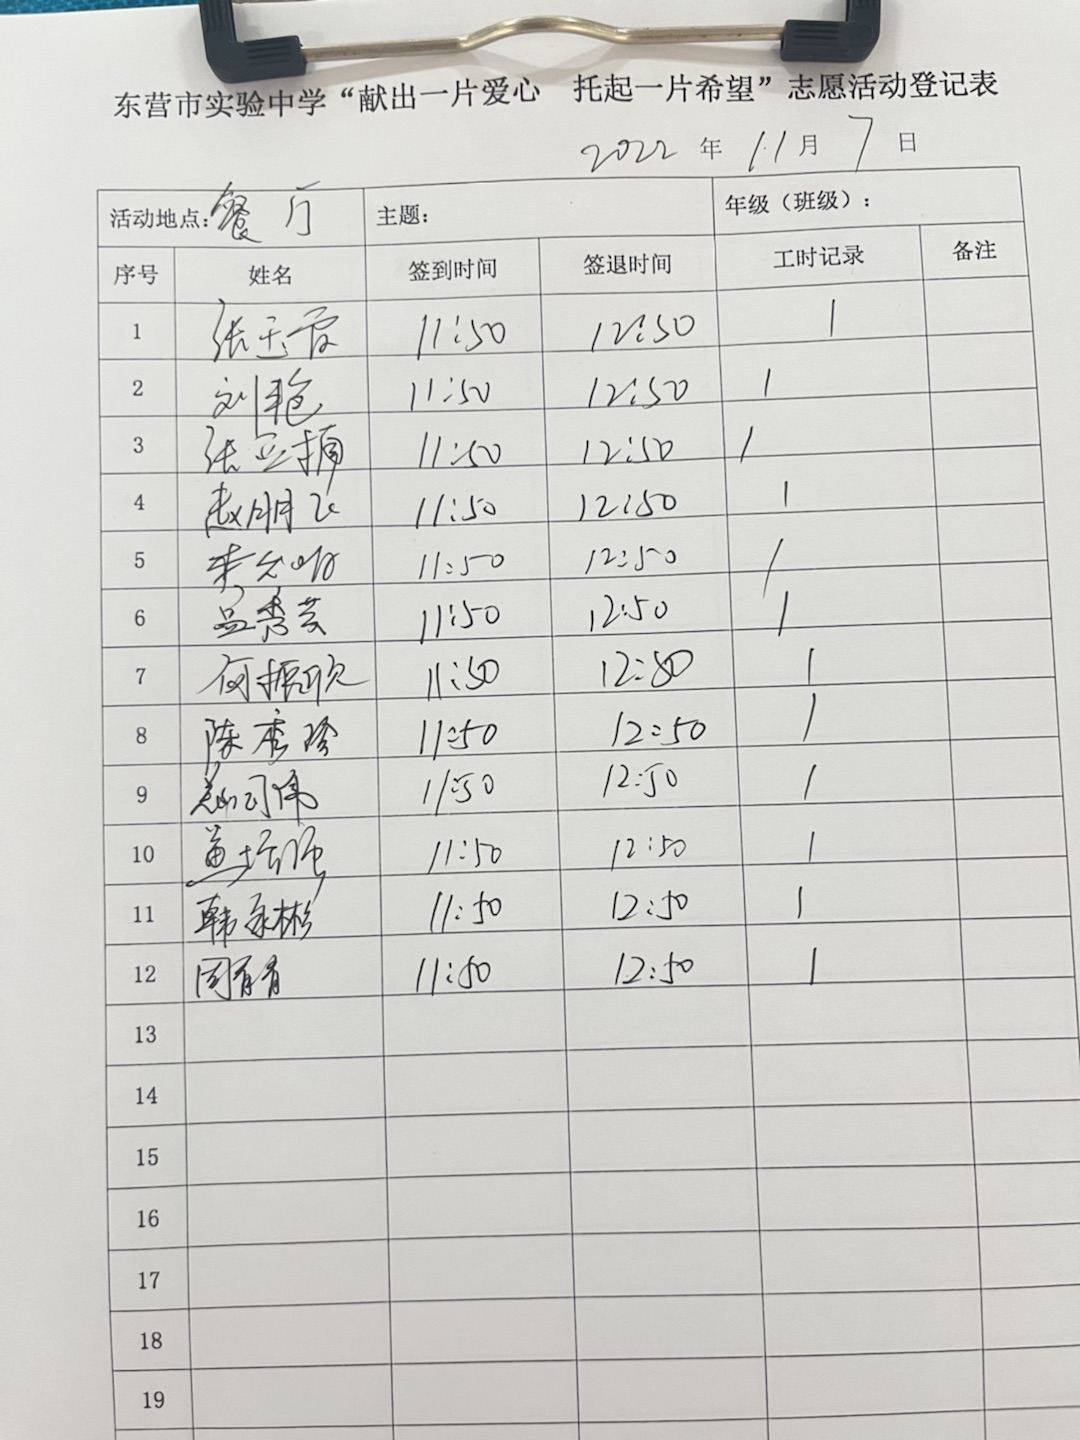 东营市实验中学“献出一片爱心 托起一片希望”志愿活动登记表
2022 年 11 月 7 日
活动地点:餐厅 主题: 年级（班级）:
序号 姓名 签到时间 签退时间 工时记录 备注
1 张玉霞 11:50 12:50 1
2 刘艳 11:50 12:50 1
3 张立 11:50 12:50 1
4 赵朋飞 11:50 12:50 1
5 11:50 12:50 1
6 孟秀芸 11:50 12:50 1
7 何振欣 11:50 12:50 1
8 陈秀珍 11:50 12:50 1
9 伟 11:50 12:50 1
10 11:50 12:50 1
11 韩永彬 11:50 12:50 1
12 周青青 11:50 12:50 1
13
14
15
16
17
18
19